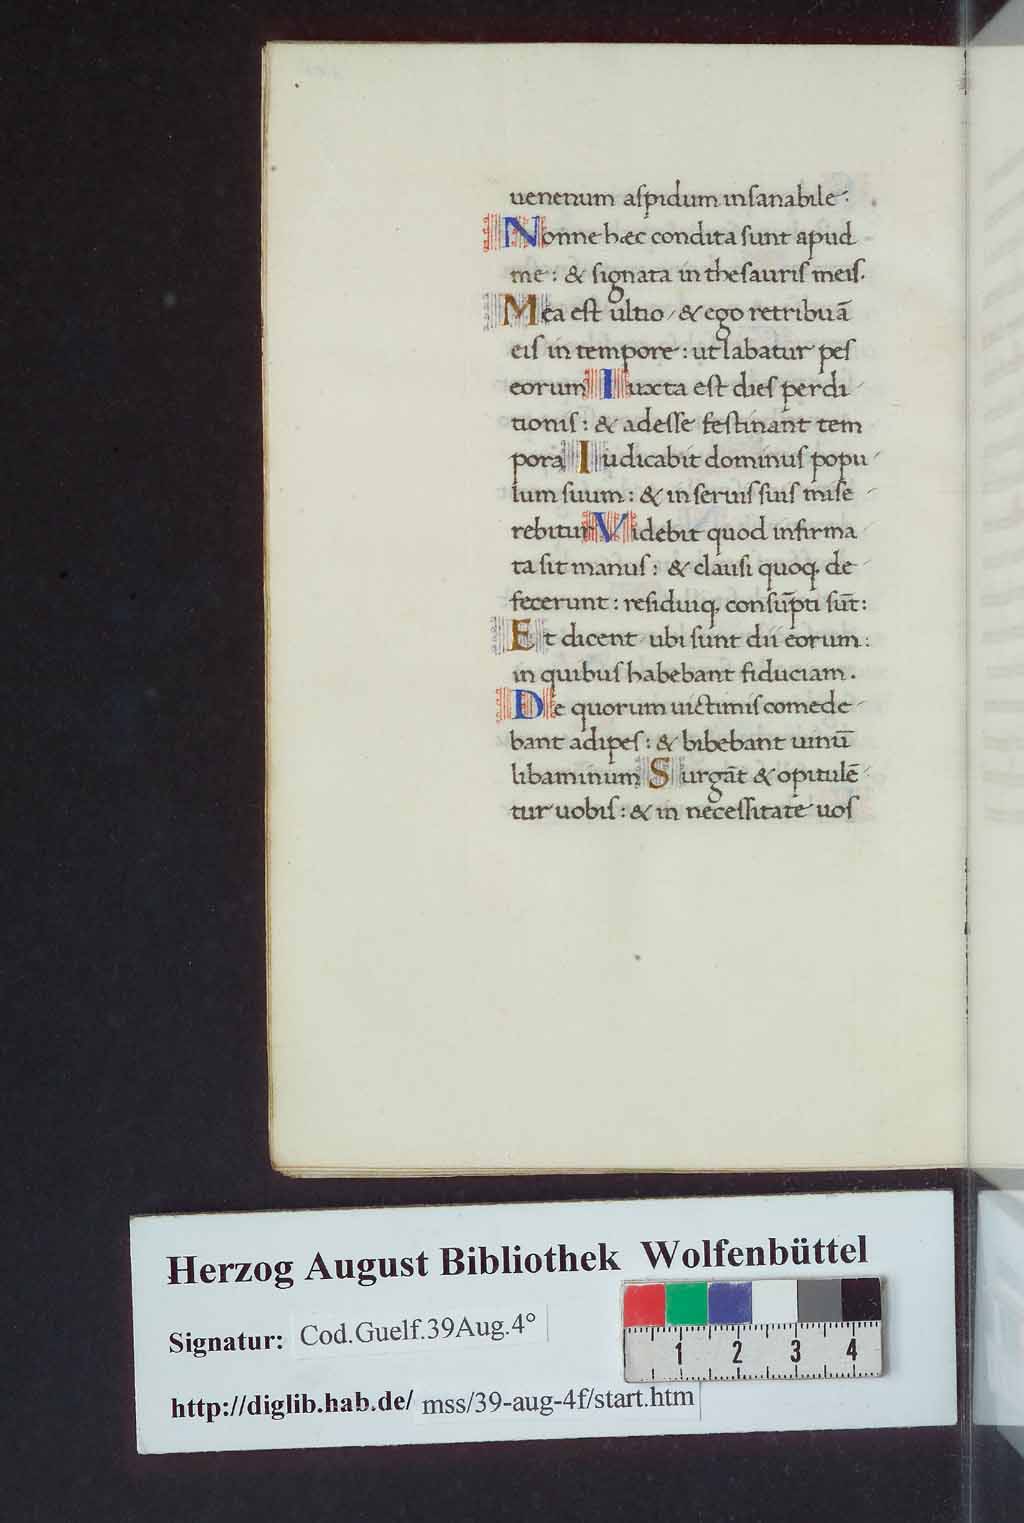 uenenum aſpidum inſanabile:
Nonne hæc condita ſunt apud
me: & ſignata in theſauriſ meiſ.
Mea eſt ultio / & ego retribuā
eiſ in tempore: ut labatur peſ
eorum Iuxta eſt dieſ perdi-
tioniſ: & adeſſe feſtinant tem
pora Iudicabit dominuſ popu-
lum ſuum: & in ſeruiſ ſuiſ miſe-
rebitur Videbit quod infirma-
ta ſit manuſ: & clauſi quoq. de-
fecerunt: reſiduiq. conſūpti ſūt:
Et dicent / ubi ſunt dii eorum:
in quibuſ habebant fiduciam.
De quorum uictimiſ comede-
bant adipeſ: & bibebant uinū
libaminum Surgāt & opitulē-
tur uobiſ: & in neceſſitate uoſ
Herzog August Bibliothek Wolfenbüttel
Signatur: Cod.Guelf.39Aug.4°
1 2 3 4
http://diglib.hab.de/ mss/39-aug-4f/start.htm